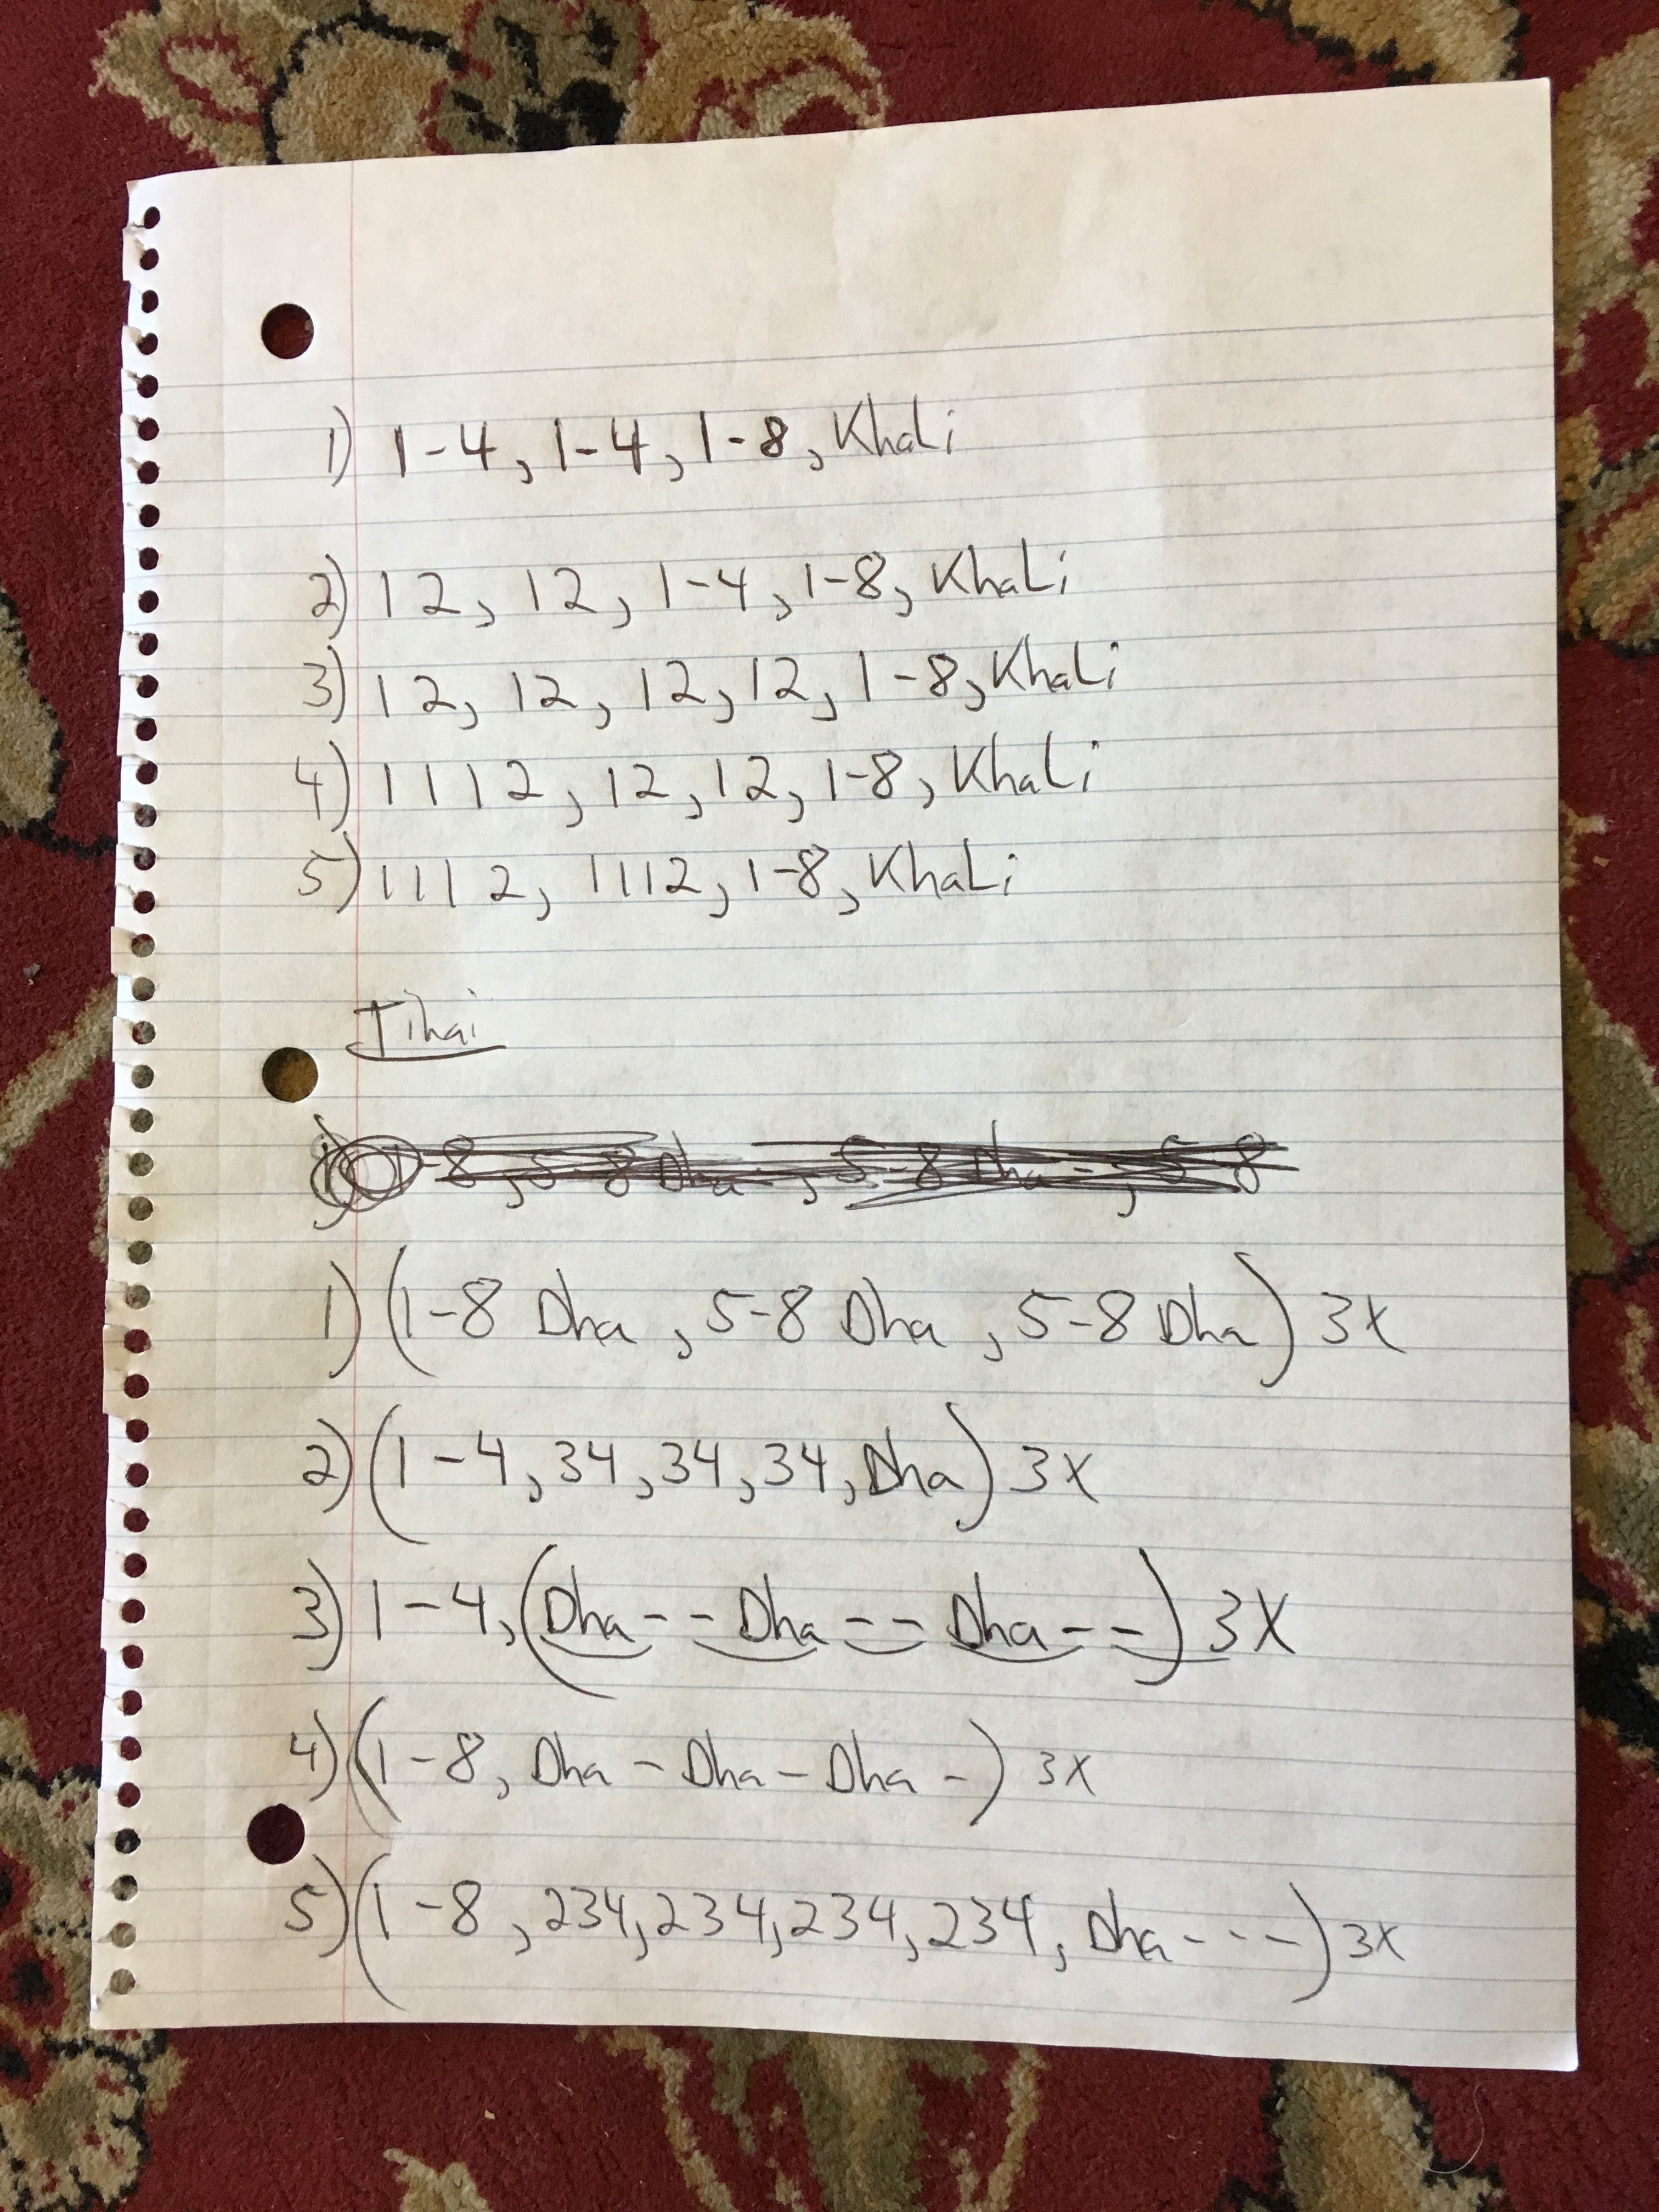 1) 1-4, 1-4, 1-8, Khali
2) 12, 12, 1-4, 1-8, Khali
3) 12, 12, 12, 12, 1-8, Khali
4) 1112, 12, 12, 1-8, Khali
5) 1112, 1112, 1-8, Khali
Tihai
1-8, 5-8 Dha -, 5-8 Dha -, 5-8
1) (1-8 Dha, 5-8 Dha, 5-8 Dha) 3x
2) (1-4, 34, 34, 34, Dha) 3x
3) 1-4, (Dha - - Dha - - Dha - -) 3x
4) (1-8, Dha - Dha - Dha -) 3x
5) (1-8, 234, 234, 234, 234, Dha - - -) 3x